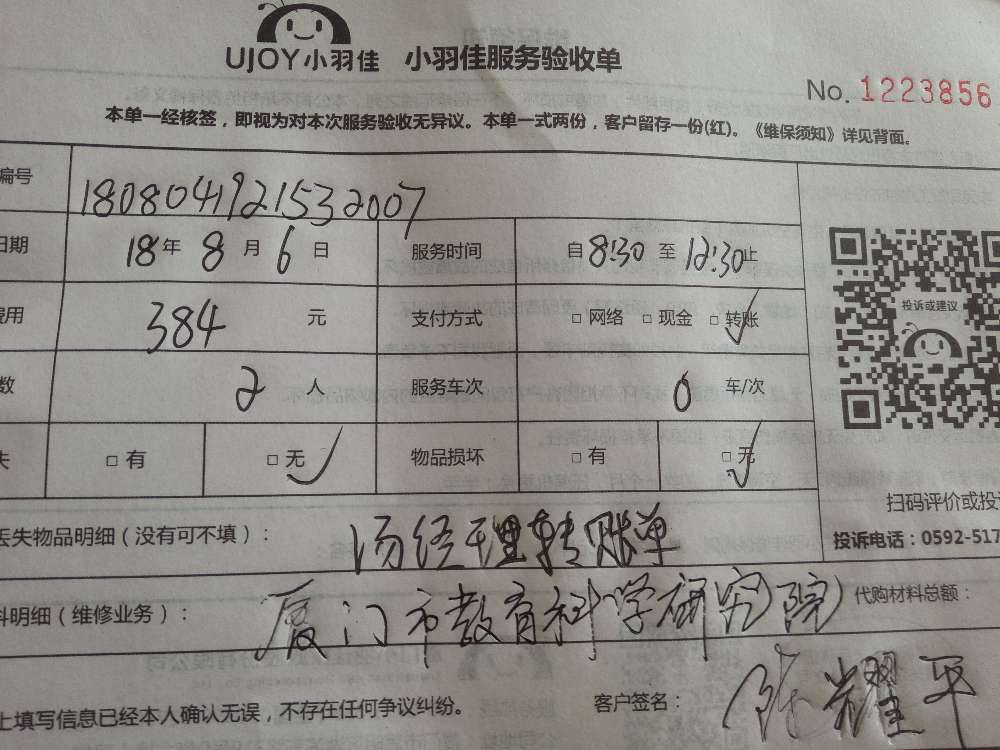 UJOY小羽佳 小羽佳服务验收单
No. 1223856
本单一经核签，即视为对本次服务验收无异议。本单一式两份，客户留存一份(红)。《维保须知》详见背面。
编号 1808041921532007
日期 18年 8月 6日 服务时间 自8:30至12:30止
费用 384 元 支付方式 □网络 □现金 □转账
数 2 人 服务车次 0 车/次
失 □有 □无 物品损坏 □有 □无
投诉或建议
扫码评价或投诉
丢失物品明细（没有可不填）： 汤经理转账单
投诉电话：0592-517
料明细（维修业务）： 厦门市教育科学研究院 代购材料总额：
上填写信息已经本人确认无误，不存在任何争议纠纷。 客户签名： 陈耀平